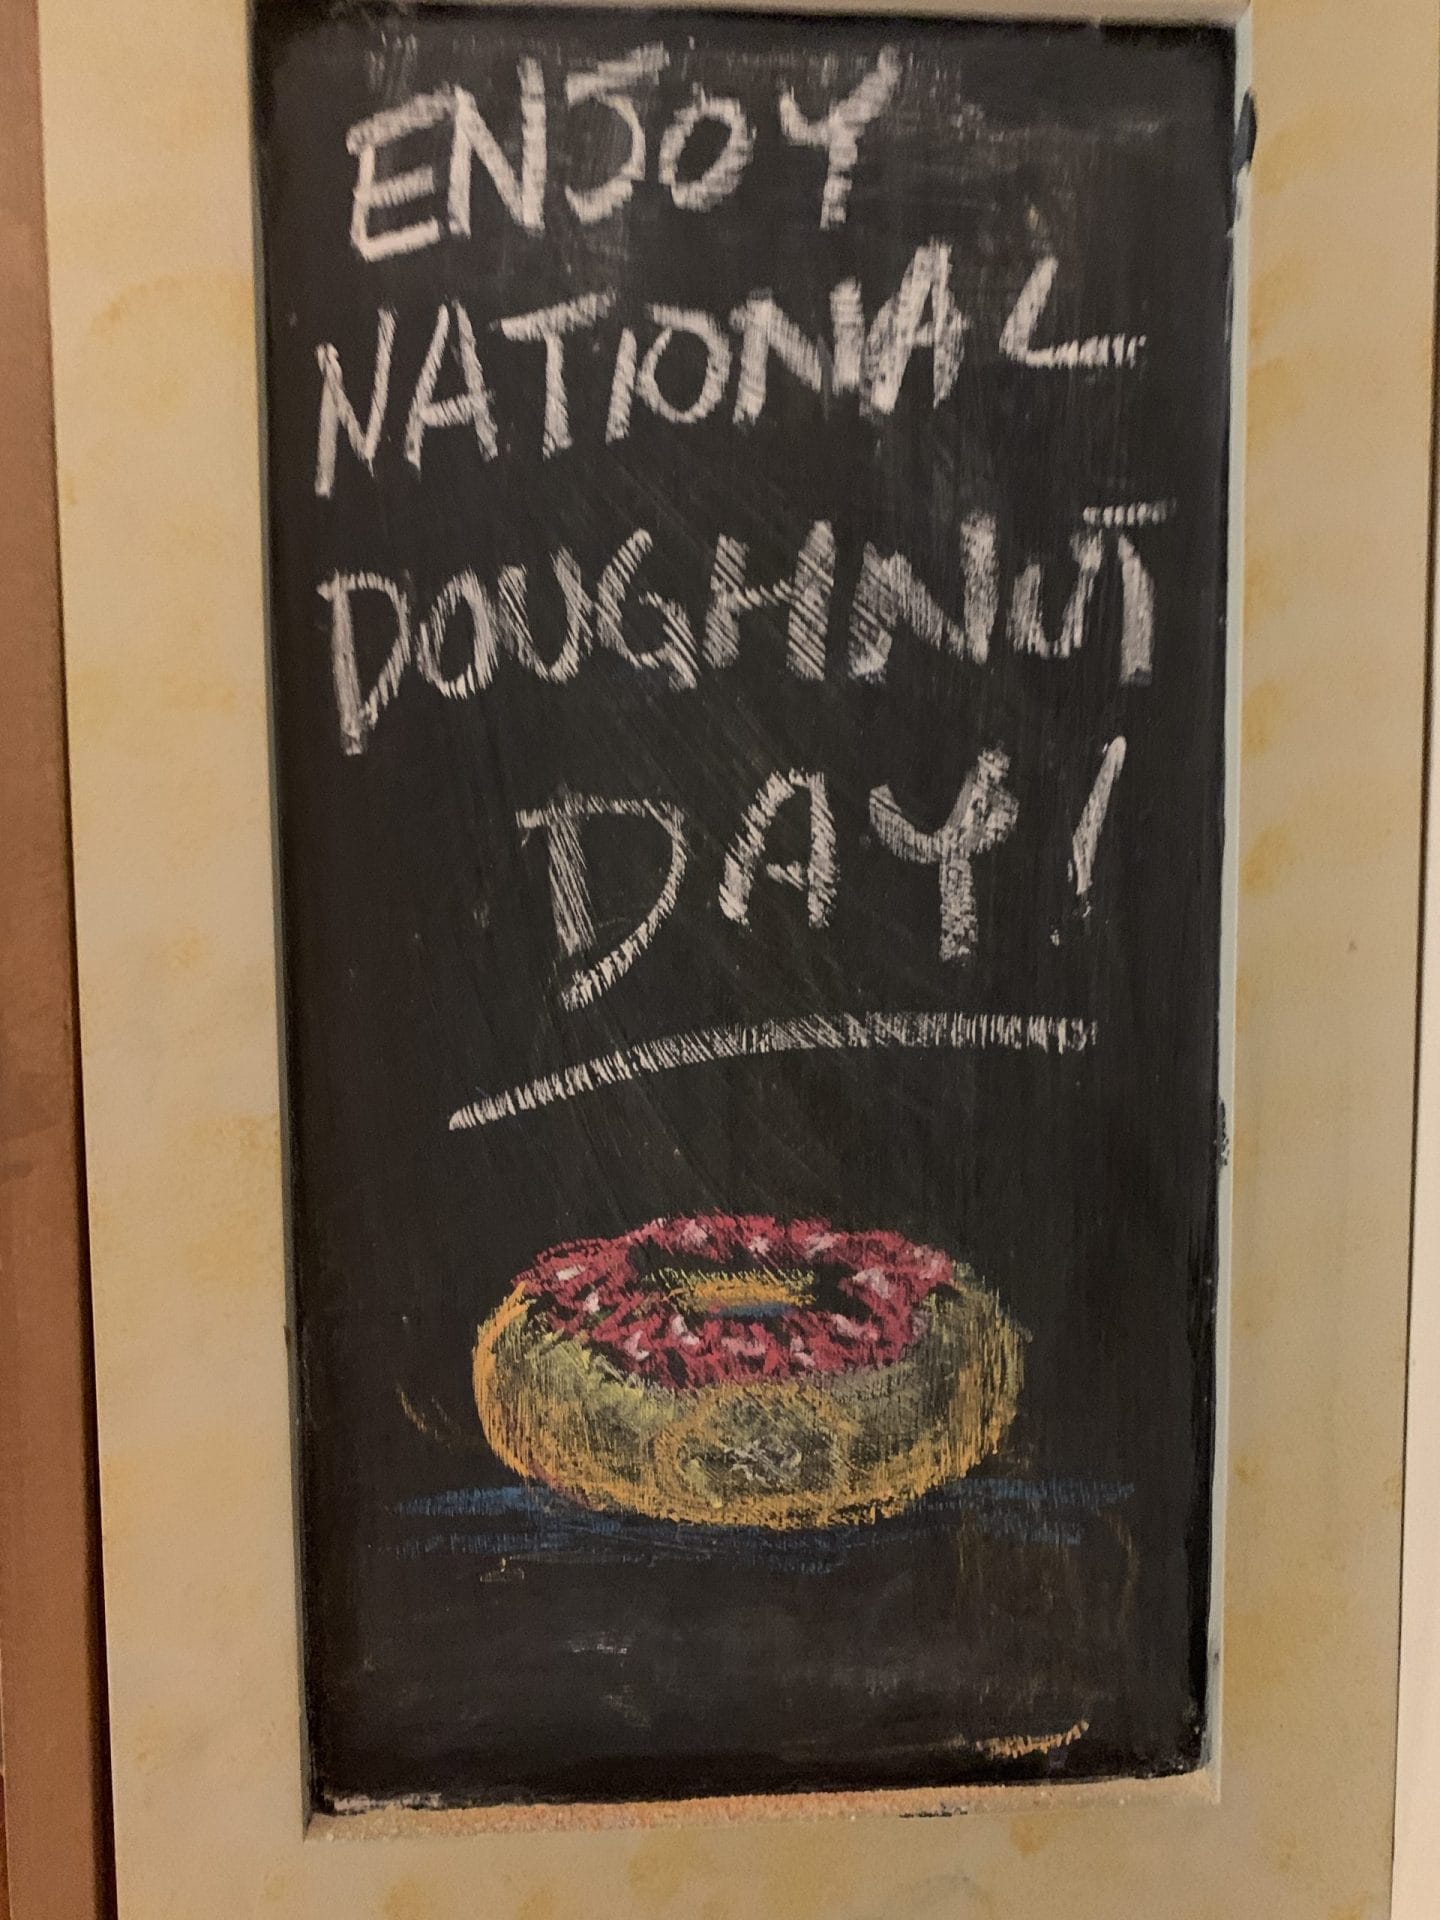 ENJOY
NATIONAL
DOUGHNUT
DAY!